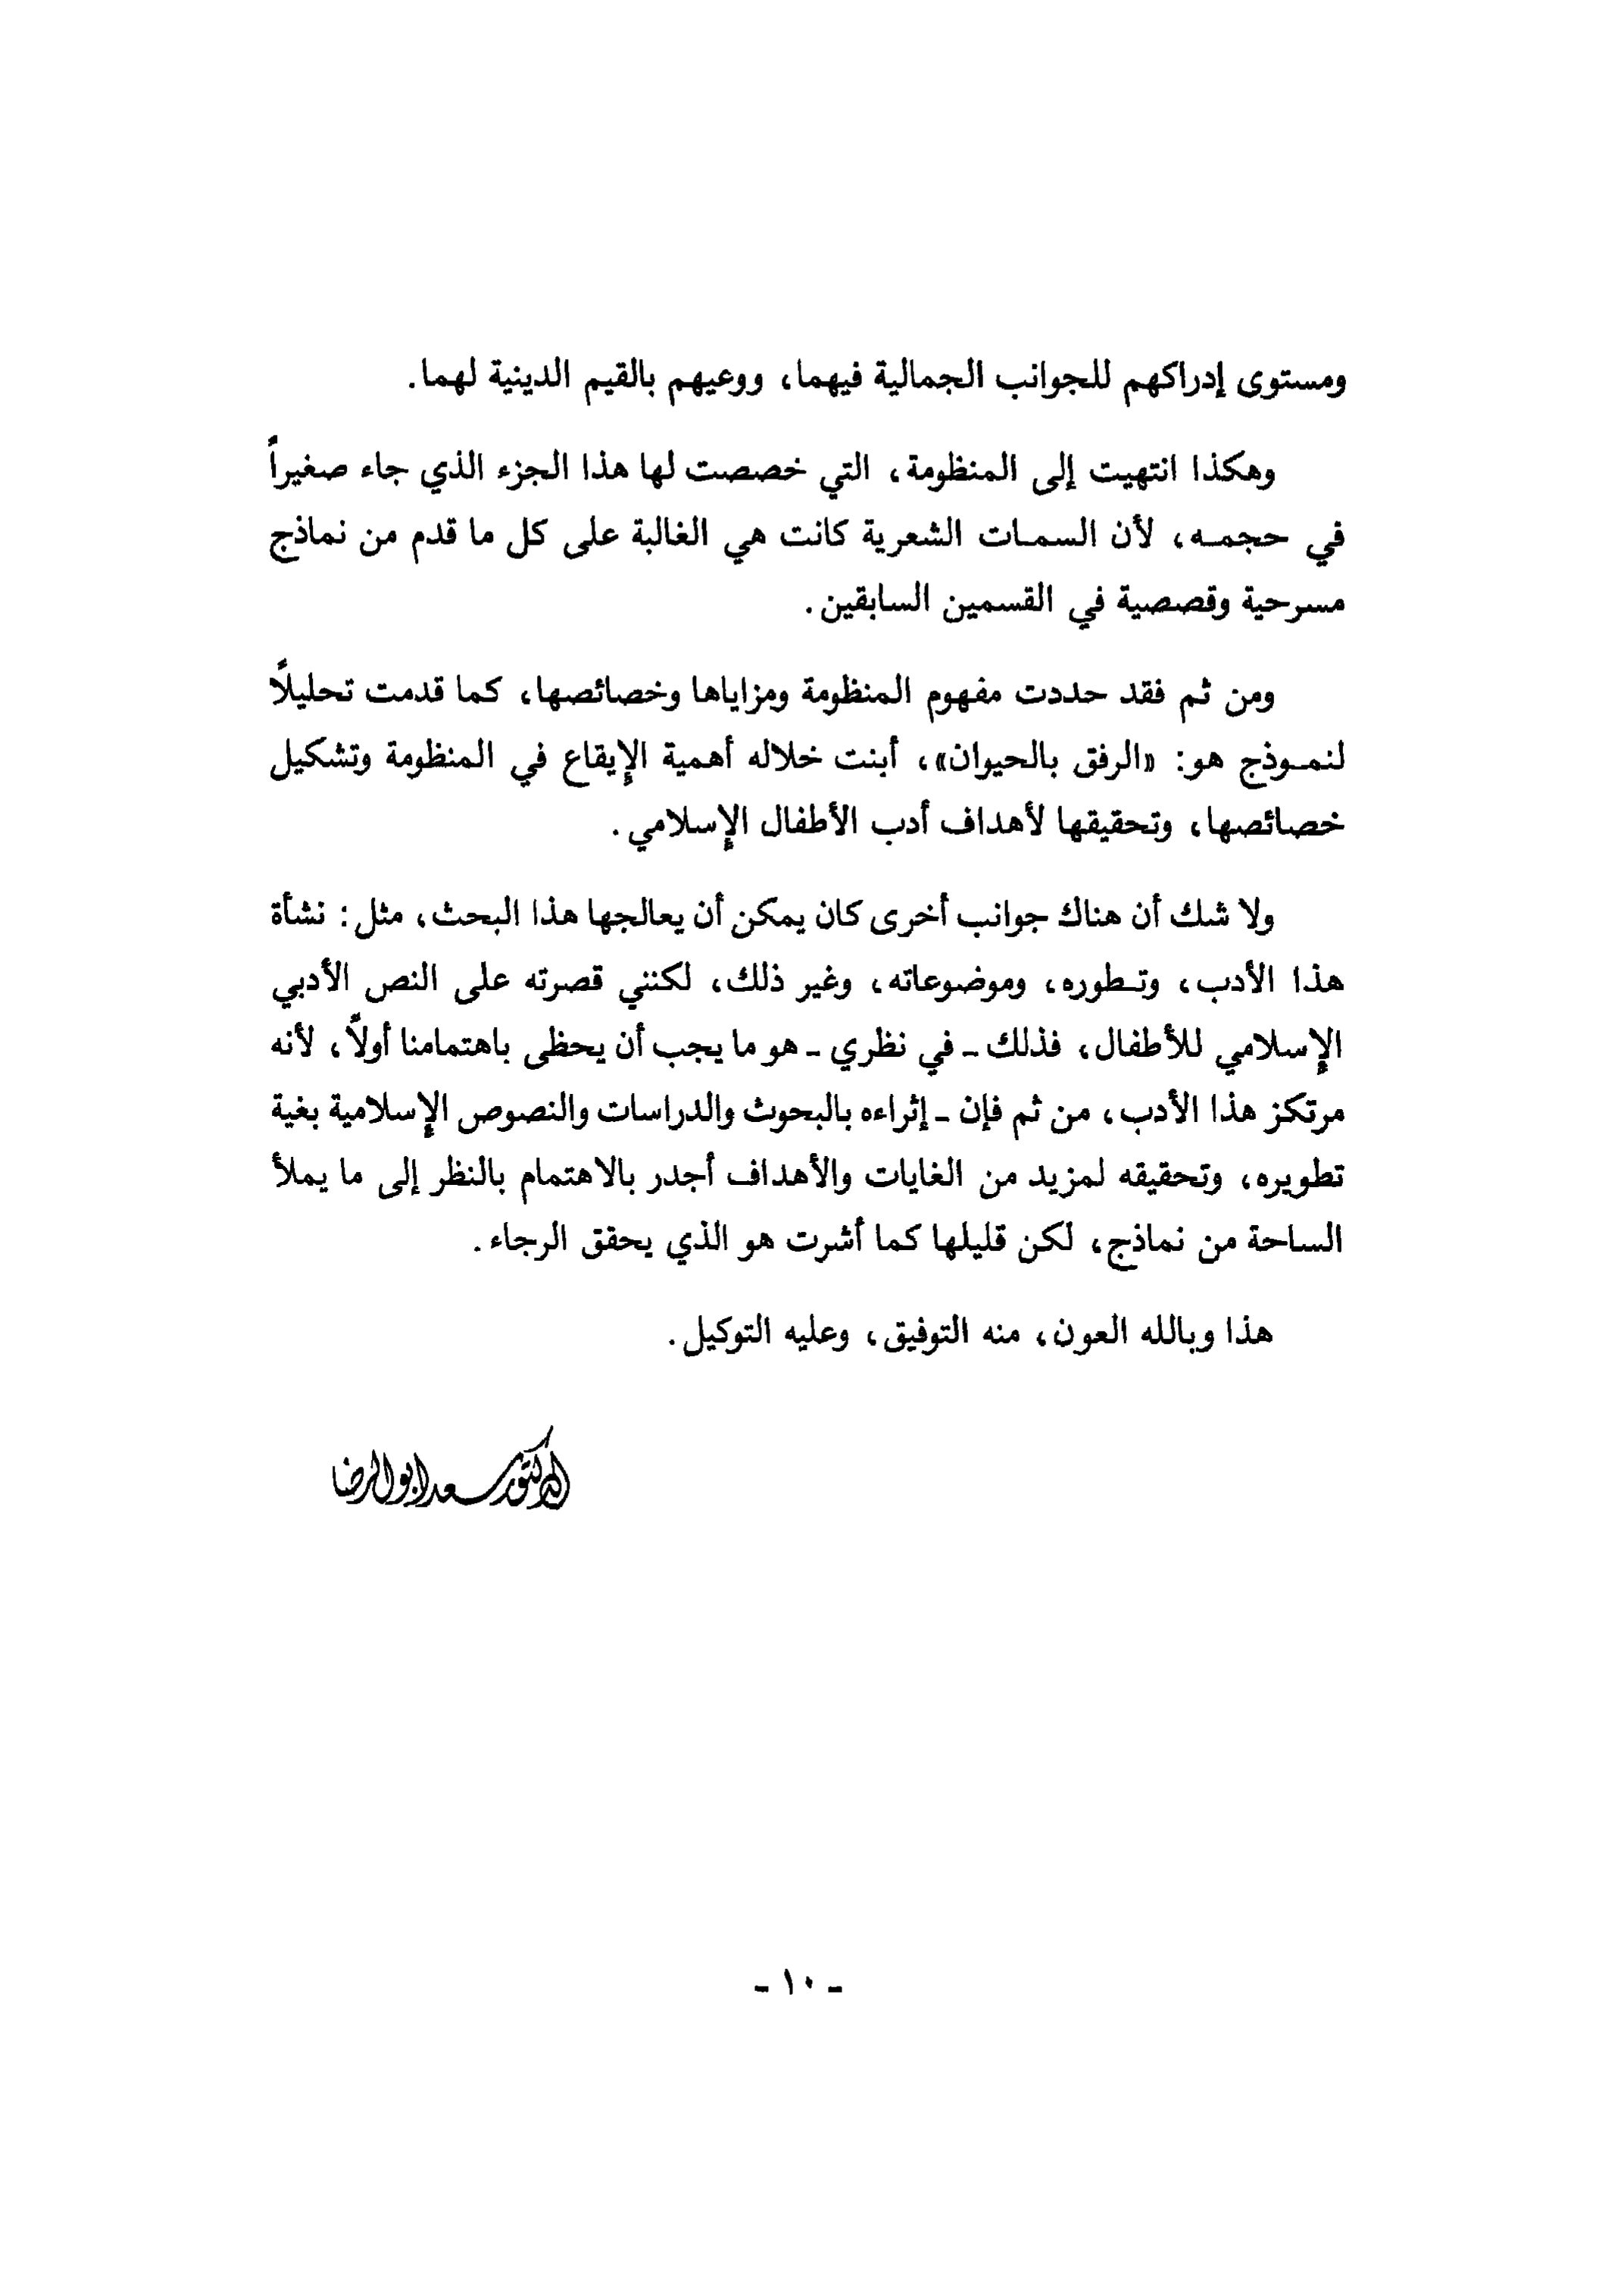 ومستوى إدراكهم للجوانب الجمالية فيهما، ووعيهم بالقيم الدينية لهما.
وهكذا انتهيت إلى المنظومة، التي خصصت لها هذا الجزء الذي جاء صغيراً
في حجمه، لأن السمات الشعرية كانت هي الغالبة على كل ما قدم من نماذج
مسرحية وقصصية في القسمين السابقين.
ومن ثم فقد حددت مفهوم المنظومة ومزاياها وخصائصها، كما قدمت تحليلاً
لنموذج هو: «الرفق بالحيوان»، أبنت خلاله أهمية الإيقاع في المنظومة وتشكيل
خصائصها، وتحقيقها لأهداف أدب الأطفال الإسلامي.
ولا شك أن هناك جوانب أخرى كان يمكن أن يعالجها هذا البحث، مثل: نشأة
هذا الأدب، وتطوره، وموضوعاته، وغير ذلك، لكنني قصرته على النص الأدبي
الإسلامي للأطفال، فذلك ـ في نظري ـ هو ما يجب أن يحظى باهتمامنا أولاً، لأنه
مرتكز هذا الأدب، من ثم فإن ـ إثراءه بالبحوث والدراسات والنصوص الإسلامية بغية
تطويره، وتحقيقه لمزيد من الغايات والأهداف أجدر بالاهتمام بالنظر إلى ما يملأ
الساحة من نماذج، لكن قليلها كما أشرت هو الذي يحقق الرجاء.
هذا وبالله العون، منه التوفيق، وعليه التوكيل.
الدكتور سعد ابو الرضا
ـ ١٠ ـ